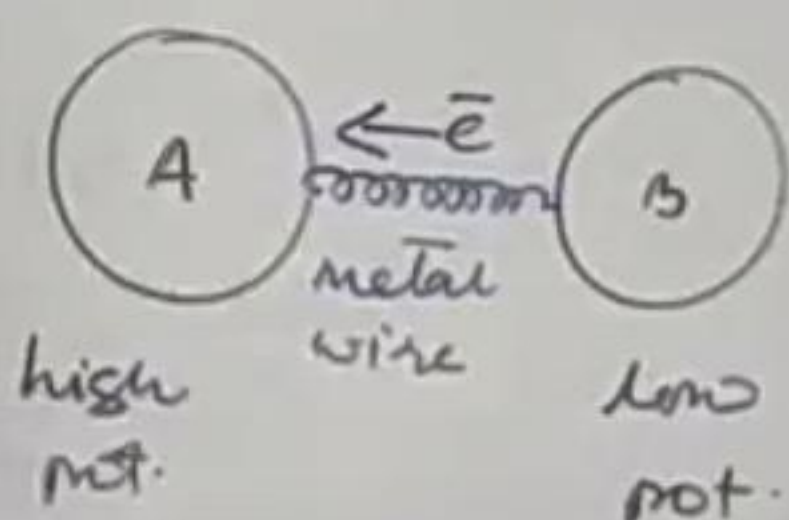 A
← e̅
B
metal
wire
high
pot.
low
pot.